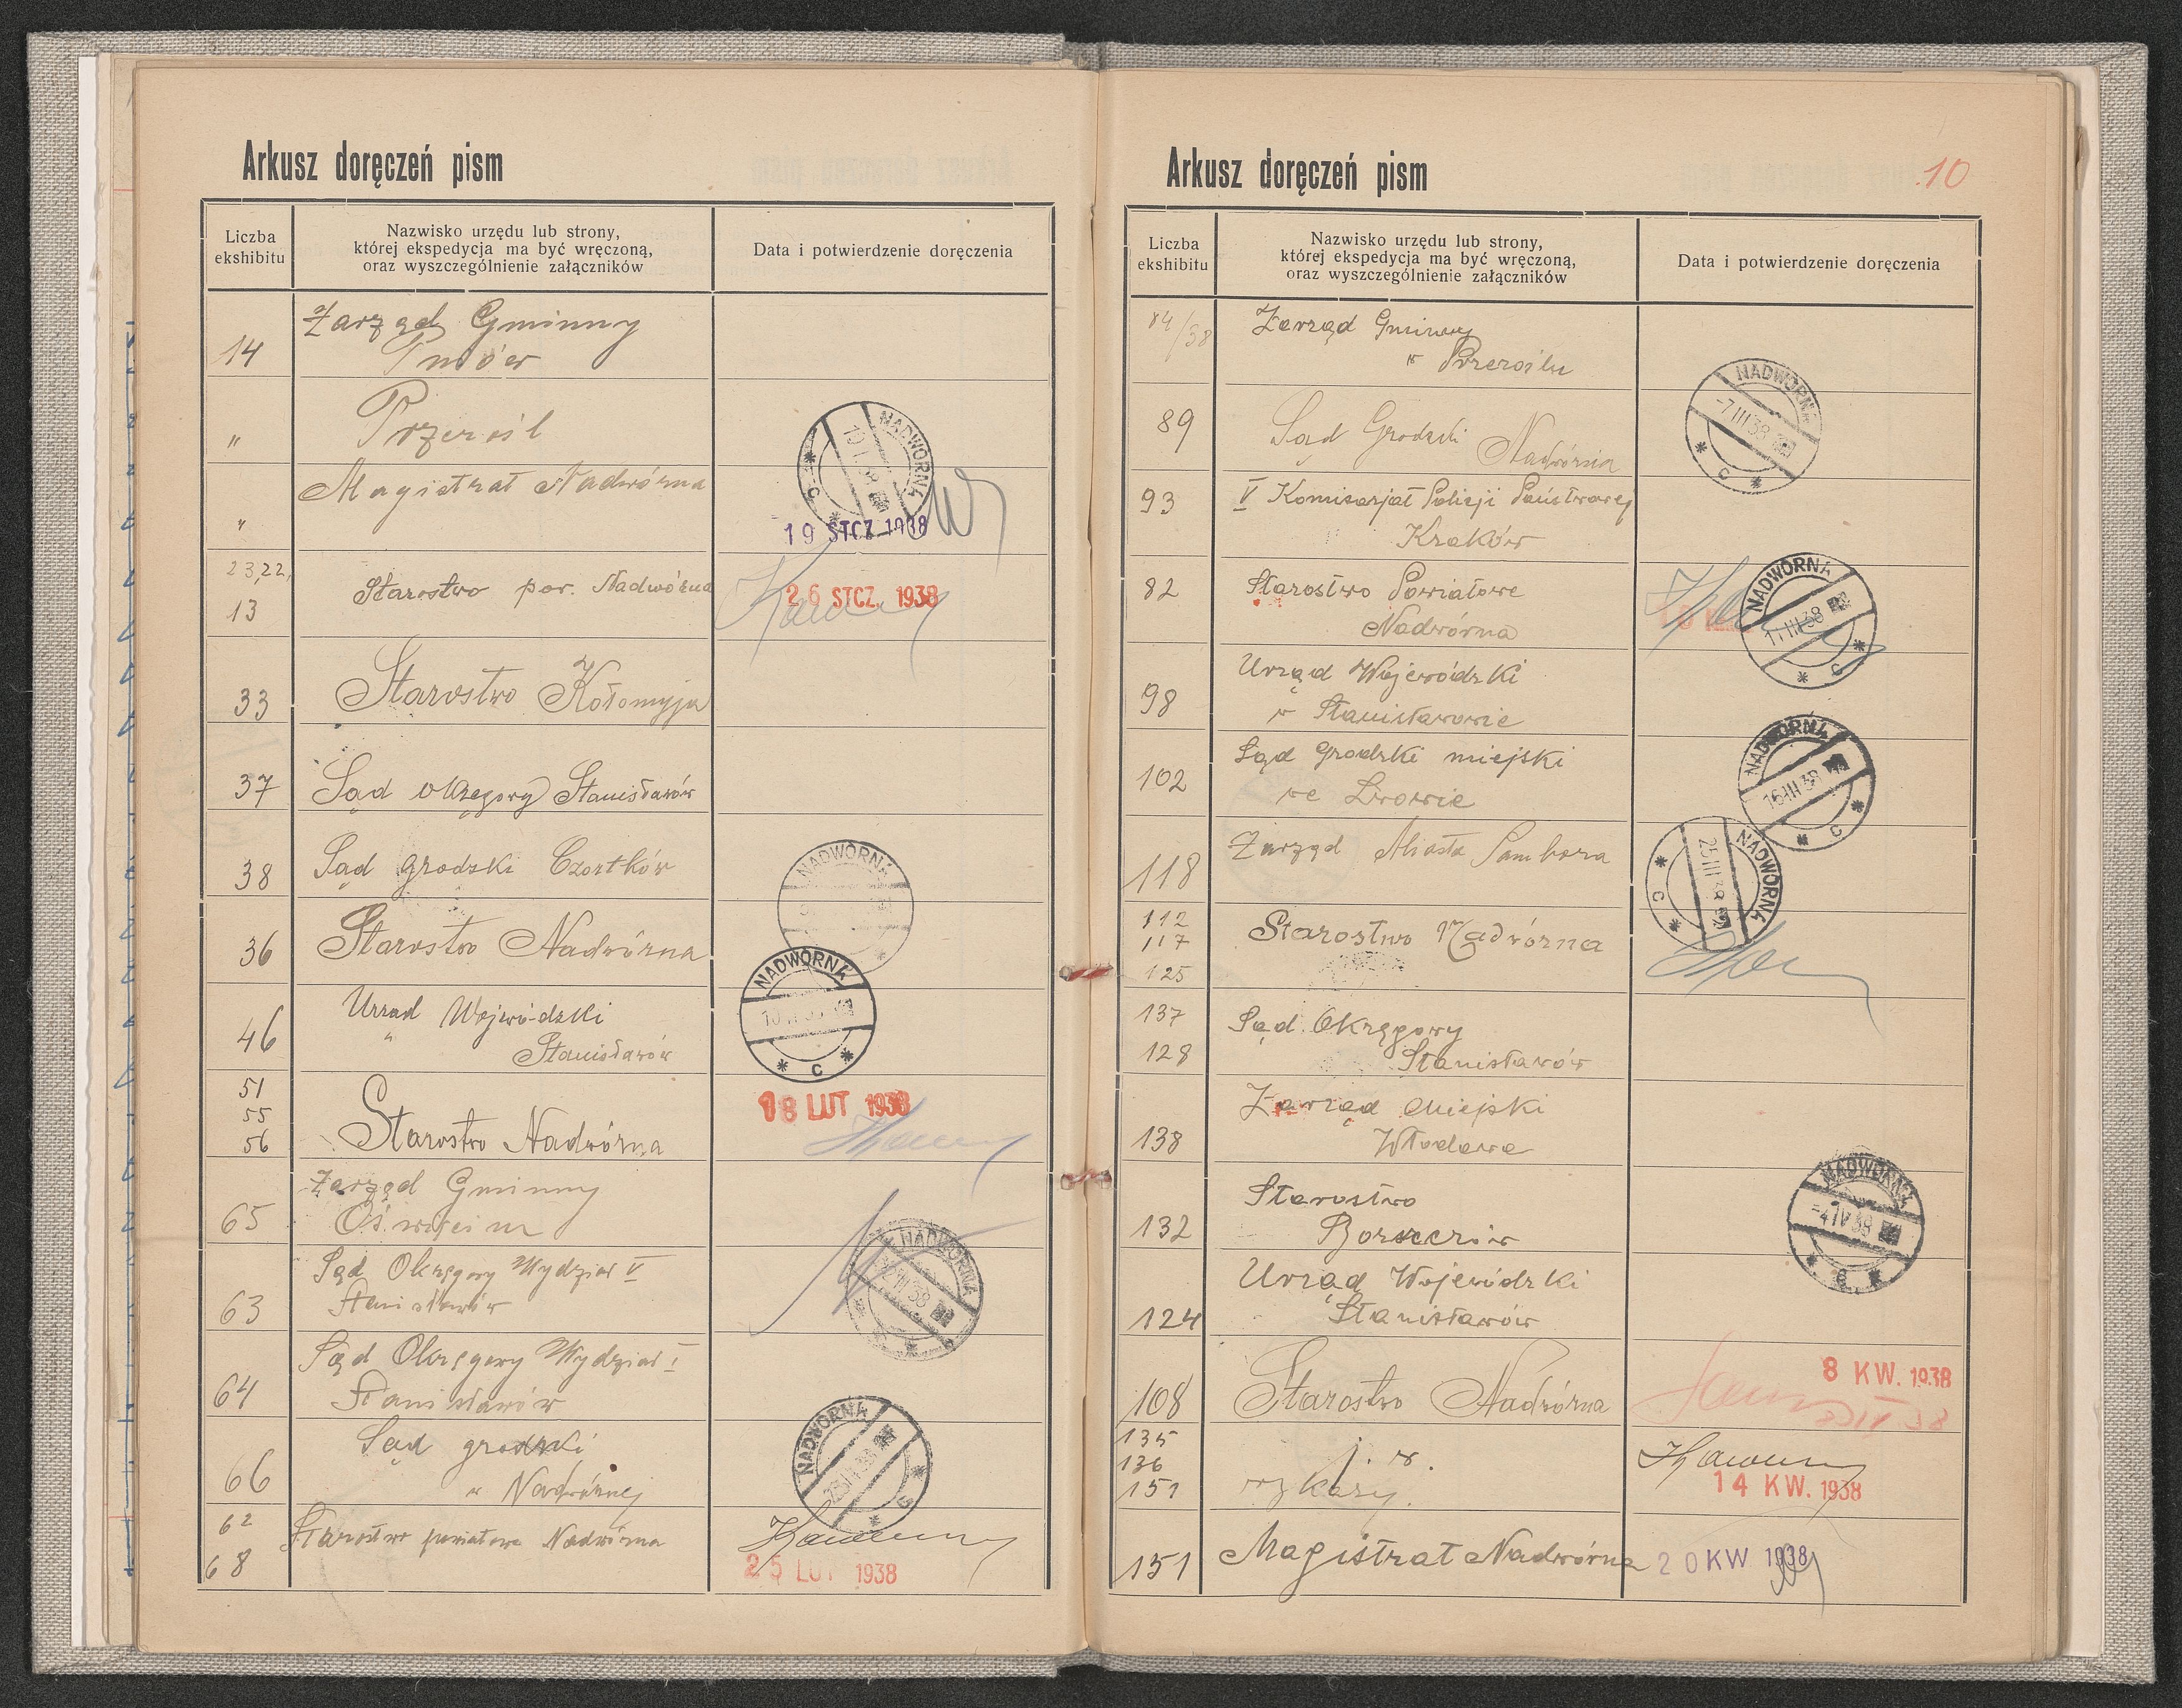 Arkusz doręczeń pism
Liczba
ekshibitu
Nazwisko urzędu lub strony,
której ekspedycja ma być wręczoną,
oraz wyszczególnienie załączników
Data i potwierdzenie doręczenia
14
Zarząd Gminny
Pniów
"
Przerośl
"
Magistrat Nadwórna
NADWÓRNA
C
19 STCZ 1938
23,22,
13
Starostwo pow. Nadwórna
26 STCZ. 1938
33
Starostwo Kołomyja
37
Sąd okręgowy Stanisławów
38
Sąd grodzki Czortków
NADWÓRNA
36
Starostwo Nadwórna
46
Urząd Wojwódzki
Stanisławów
NADWÓRNA
C
51
55
56
Starostwo Nadwórna
18 LUT 1938
65
Zarząd Gminny
Oświęcim
63
Sąd Okręgowy Wydział V
Stanisławów
NADWÓRNA
64
Sąd Okręgowy Wydział I
Stanisławów
66
Sąd grodzki
w Nadwórnej
NADWÓRNA
C
62
68
Starostwo powiatowe Nadwórna
25 LUT 1938
Arkusz doręczeń pism
10
Liczba
ekshibitu
Nazwisko urzędu lub strony,
której ekspedycja ma być wręczoną,
oraz wyszczególnienie załączników
Data i potwierdzenie doręczenia
84/38
Zarząd Gminny
w Przeroślu
89
Sąd Grodzki Nadwórnia
NADWÓRNA
-7 III 38
C
93
V Komisarjat Policji Państwowej
Kraków
82
Starostwo Powiatowe
Nadwórna
NADWÓRNA
C
98
Urząd Wojewódzki
w Stanisławowie
102
Sąd grodzki miejski
we Lwowie
NADWÓRNA
16 III 38
C
118
Zarząd Miasta Sambora
NADWÓRNA
25 III 38
C
112
117
125
Starostwo Nadwórna
137
128
Sąd Okręgowy
Stanisławów
138
Zarząd Miejski
Włodawa
132
Starostwo
Borszczów
NADWÓRNA
-4 IV 38
C
124
Urząd Wojewódzki
Stanisławów
108
Starostwo Nadwórna
8 KW. 1938
8 IV 38
135
136
151
j. w.
14 KW. 1938
151
Magistrat Nadwórna
20 KW 1938